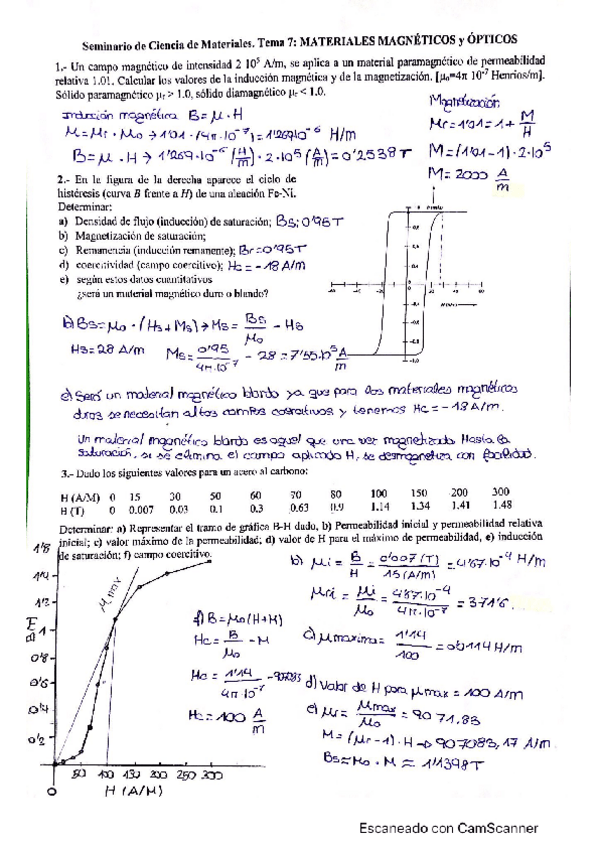 Seminario de Ciencia de Materiales. Tema 7: MATERIALES MAGNÉTICOS y ÓPTICOS
1.- Un campo magnético de intensidad 2 10⁵ A/m, se aplica a un material paramagnético de permeabilidad
relativa 1.01. Calcular los valores de la inducción magnética y de la magnetización. [μ₀=4π 10⁻⁷ Henrios/m].
Sólido paramagnético μᵣ > 1.0, sólido diamagnético μᵣ < 1.0.
Inducción magnética B = μ · H
μ = μr · μo → 1'01 · (4π·10⁻⁷) = 1'269·10⁻⁶ H/m
B = μ · H → 1'269·10⁻⁶ (H/m) · 2·10⁵ (A/m) = 0'2538 T
Magnetización
μr = 1'01 = 1 + M/H
M = (1'01 - 1) · 2·10⁵
M = 2000 A/m
2.- En la figura de la derecha aparece el ciclo de
histéresis (curva B frente a H) de una aleación Fe-Ni.
Determinar:
a) Densidad de flujo (inducción) de saturación; Bs: 0'95T
b) Magnetización de saturación;
c) Remanencia (inducción remanente); Br = 0'95T
d) coercitividad (campo coercitivo); Hc = -18 A/m
e) según estos datos cuantitativos
¿será un material magnético duro o blando?
b) Bs = μo · (Hs + Ms) → Ms = Bs/μo - Hs
Hs = 28 A/m
Ms = 0'95/4π·10⁻⁷ - 28 = 7'55·10⁵ A/m
e) Será un material magnético blando ya que para los materiales magnéticos
duros se necesitan altos campos coercitivos y tenemos Hc = -18 A/m.
Un material magnético blando es aquel que una vez magnetizado hasta la
saturación, si se elimina el campo aplicado H, se desmagnetiza con facilidad.
3.- Dado los siguientes valores para un acero al carbono:
H (A/M) 0 15 30 50 60 70 80 100 150 200 300
B (T) 0 0.007 0.03 0.1 0.3 0.63 0.9 1.14 1.34 1.41 1.48
Determinar: a) Representar el tramo de gráfica B-H dado, b) Permeabilidad inicial y permeabilidad relativa
inicial; c) valor máximo de la permeabilidad; d) valor de H para el máximo de permeabilidad, e) inducción
de saturación; f) campo coercitivo.
b) μi = B/H = 0'007 (T)/15 (A/m) = 4'67·10⁻⁴ H/m
μri = μi/μo = 4'67·10⁻⁴/4π·10⁻⁷ = 371'6
c) μmaxima = 1'14/100 = 0'0114 H/m
d) Valor de H para μmax = 100 A/m
e) μr = μmax/μo = 9071,83
M = (μr - 1) · H → 907083,17 A/m
Bs ≈ μo · M ≈ 1'1398 T
f) B = μo (H+M)
Hc = B/μo - M
Hc = 1'14/4π·10⁻⁷ - 907083
Hc = 100 A/m
1'8
1'4
1'2
1
0'8
0'6
0'4
0'2
0
50 100 150 200 250 300
H (A/M)
μ max
Escaneado con CamScanner